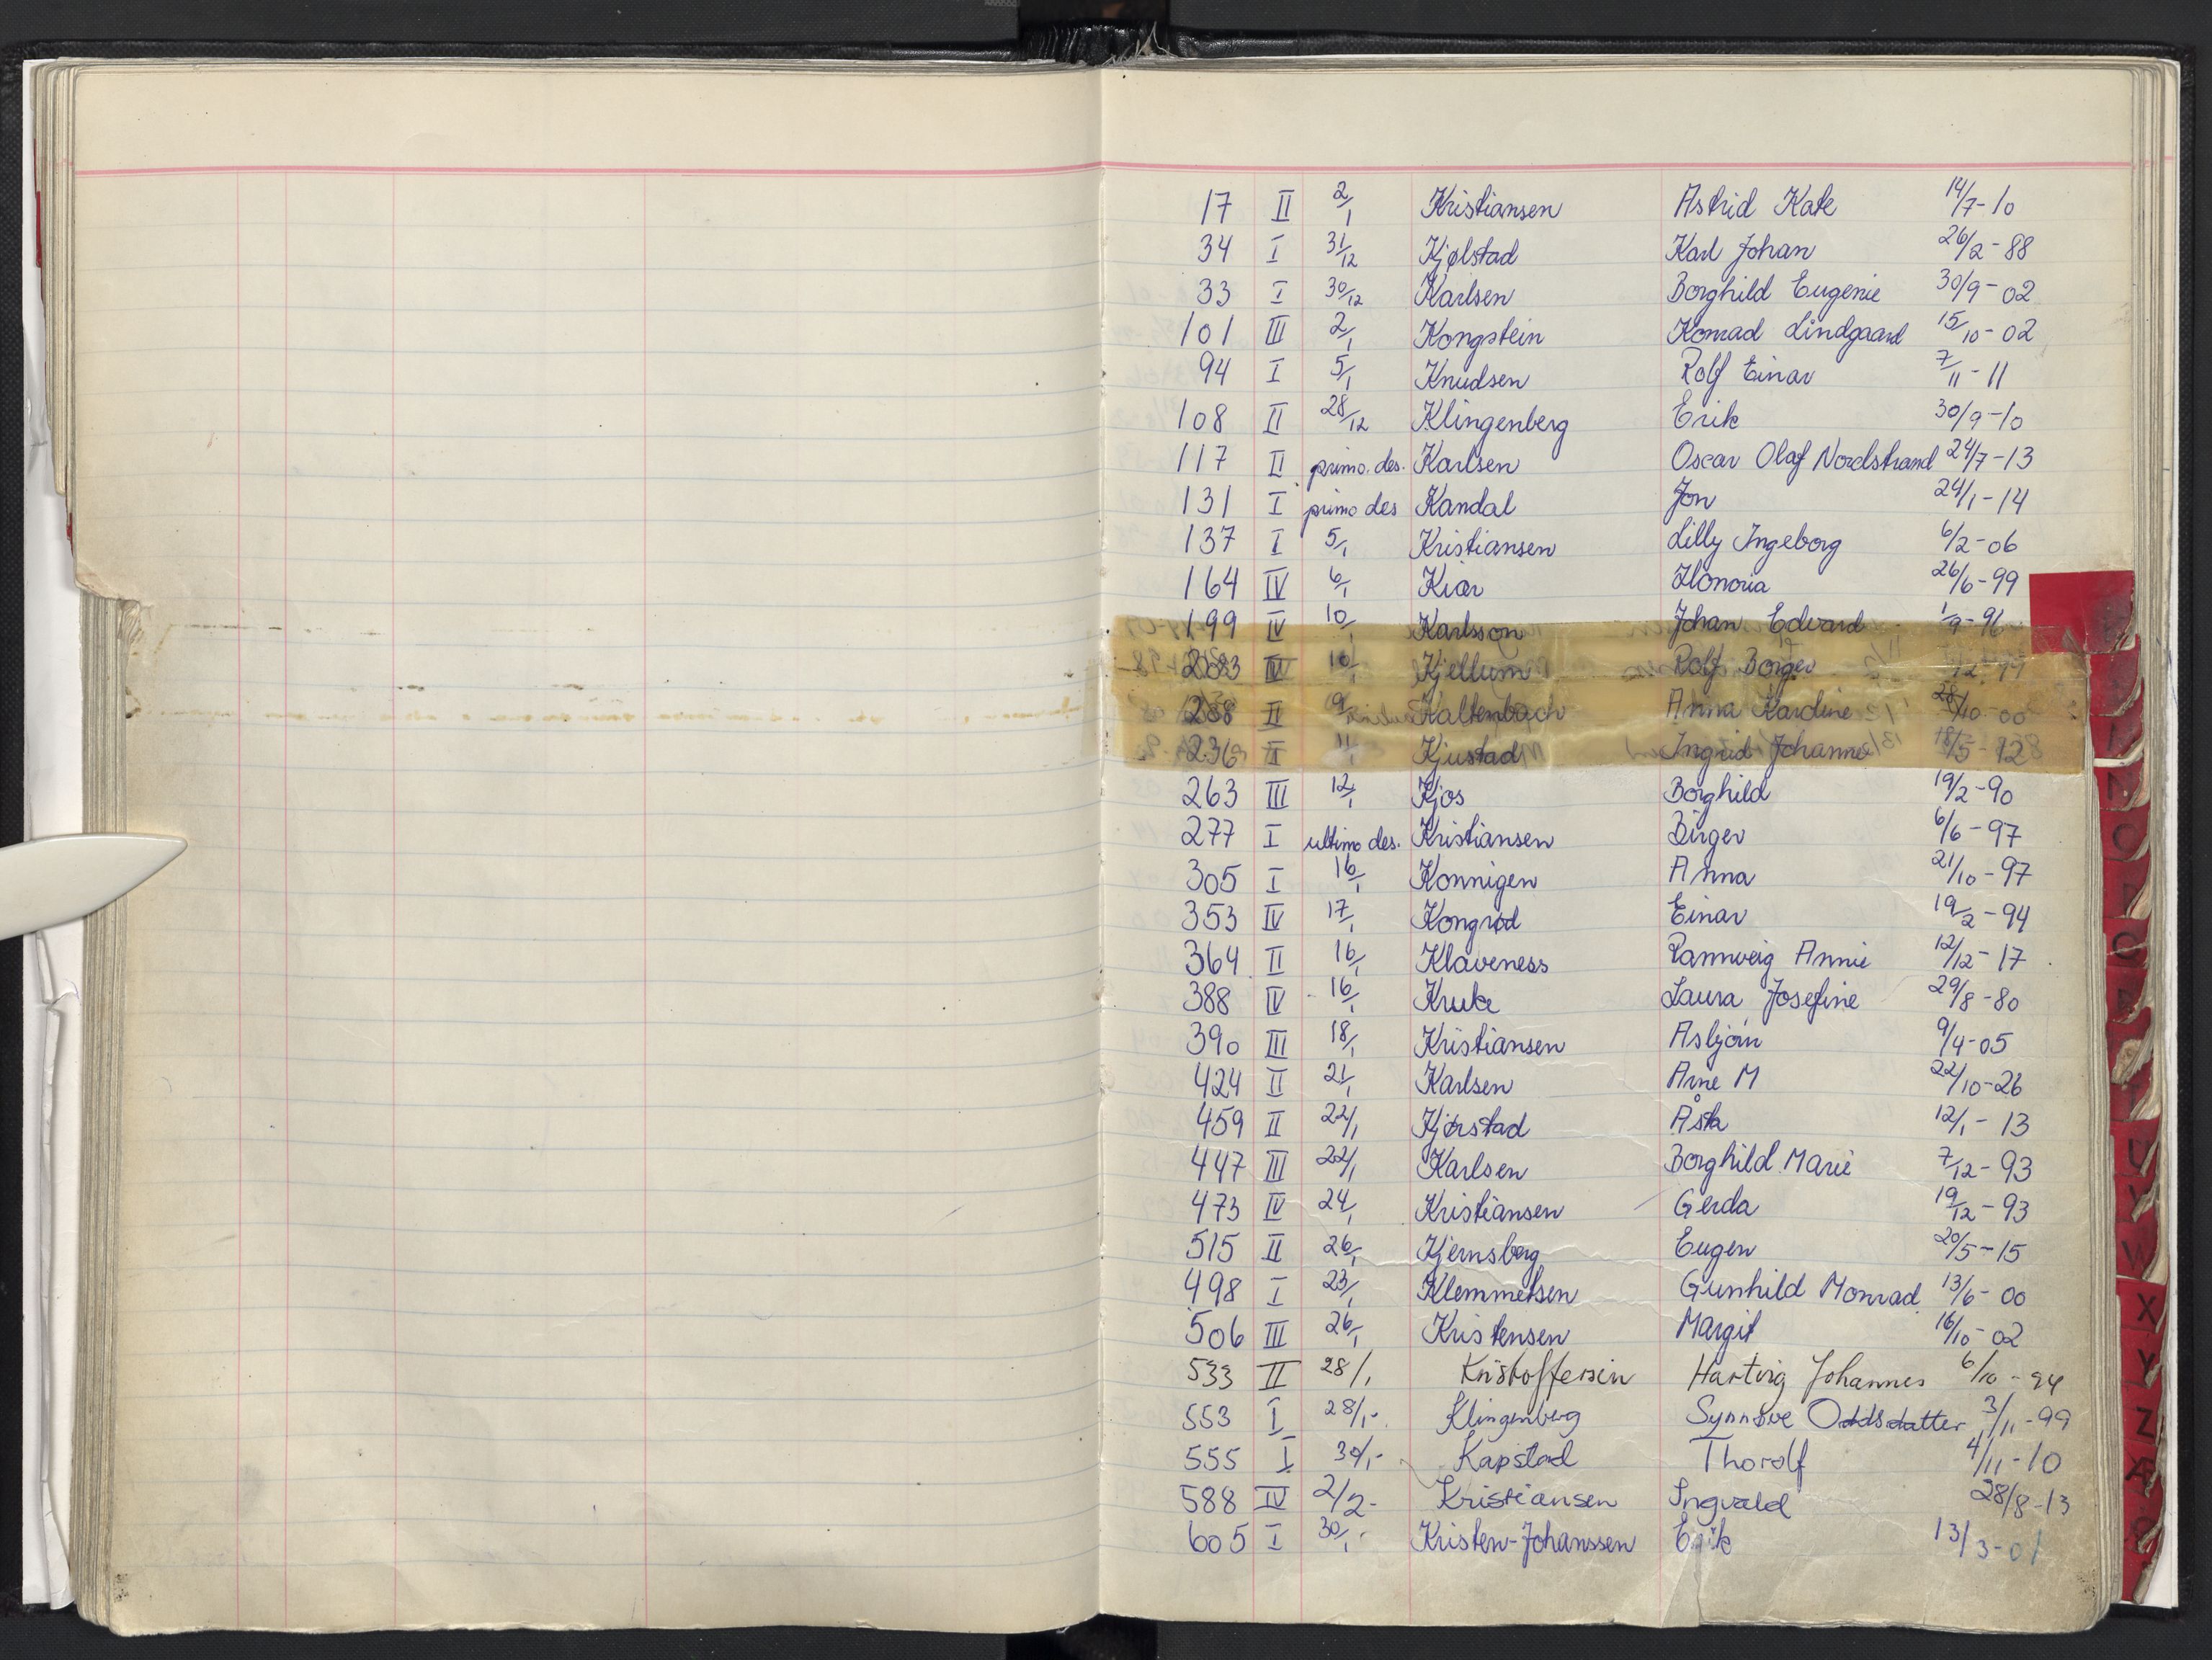 17 II 2/1 Kristiansen Astrid Kate 14/7-10
34 I 31/12 Kjølstad Karl Johan 26/2-88
33 I 30/12 Karlsen Borghild Eugenie 30/9-02
101 III 2/1 Kongstein Konrad Lindgaard 15/10-02
94 I 5/1 Knudsen Rolf Einar 7/11-11
108 II 28/12 Klingenberg Erik 30/9-10
117 II primo. des. Karlsen Oscar Olaf Nordstrand 24/7-13
131 I primo des Kandal Jon 24/1-14
137 I 5/1 Kristiansen Lilly Ingeborg 6/2-06
164 IV 6/1 Kiær Honoria 26/6-99
199 IV 10/1 Karlsson Johan Edvard 1/9-96
IV 10/1 Kjellum Rolf Borger
II 9/1 Kaltenbach Anna Kardine 28/10-00
236 II 11/1 Kjustad Ingrid Johanne 18/5-12
263 III 12/1 Kjos Borghild 19/2-90
277 I ultimo des. Kristiansen Birger 6/6-97
305 I 16/1 Konnigen Anna 21/10-97
353 IV 17/1 Kongrød Einar 19/2-94
364 II 16/1 Klaveness Rannveig Annie 12/12-17
388 IV 16/1 Kruke Laura Josefine 29/8-80
390 III 18/1 Kristiansen Asbjørn 9/4-05
424 II 21/1 Karlsen Arne M 22/10-26
459 II 22/1 Kjørstad Åsta 12/1-13
447 III 22/1 Karlsen Borghild Marie 7/12-93
473 IV 24/1 Kristiansen Gerda 19/12-93
515 II 26/1 Kjernsberg Eugen 20/5-15
498 I 23/1 Klemmetsen Gunhild Monrad 13/6-00
506 III 26/1 Kristensen Margit 16/10-02
533 II 28/1 Kristoffersen Hartvig Johannes 6/10-94
553 I 28/1- Klingenberg Synnøve Oddsdatter 3/11-99
555 I 30/1- Kapstad Thorolf 4/11-10
588 IV 2/2- Kristiansen Ingvald 28/8-13
605 I 30/1 Kristen-Johanssen Erik 13/3-01
U
V
W
X
Y
Z
Æ
Ø